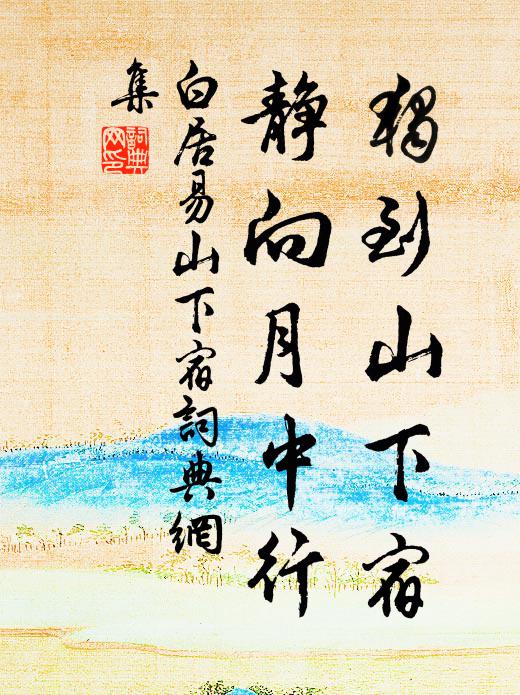 獨到山下宿
靜向月中行
白居易山下宿詞典網
集
詞典网印